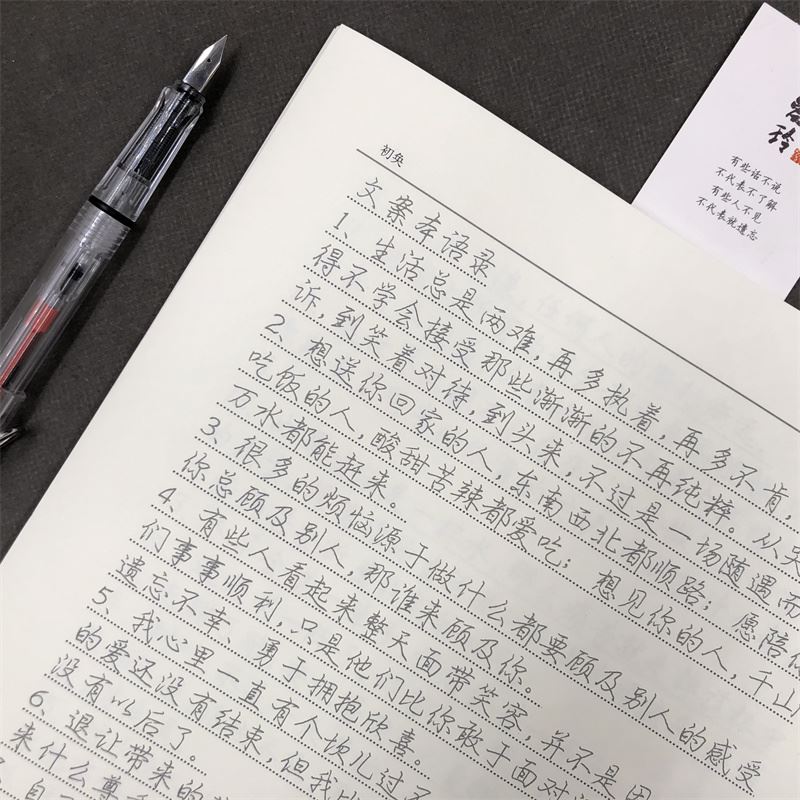 初奂
文案本语录
1、生活总是两难,再多执着,再多不肯,
得不学会接受那些渐渐的不再纯粹。从哭
诉,到笑着对待,到头来,不过是一场随遇而
2、想送你回家的人,东南西北都顺路;愿陪你
吃饭的人,酸甜苦辣都爱吃;想见你的人,千山
万水都能赶来。
3、很多的烦恼源于做什么都要顾及别人的感受
你总顾及别人,那谁来顾及你。
4、有些人看起来整天面带笑容,并不是因
们事事顺利,只是他们比你敢于面对
遗忘不幸、勇于拥抱欣喜。
5、我心里一直有个坎儿过不
的爱还没有结束,但我
没有以后了。
6、退让带来的
来什么尊
自
有些话不说
不代表不了解
有些人不见
不代表就遗忘